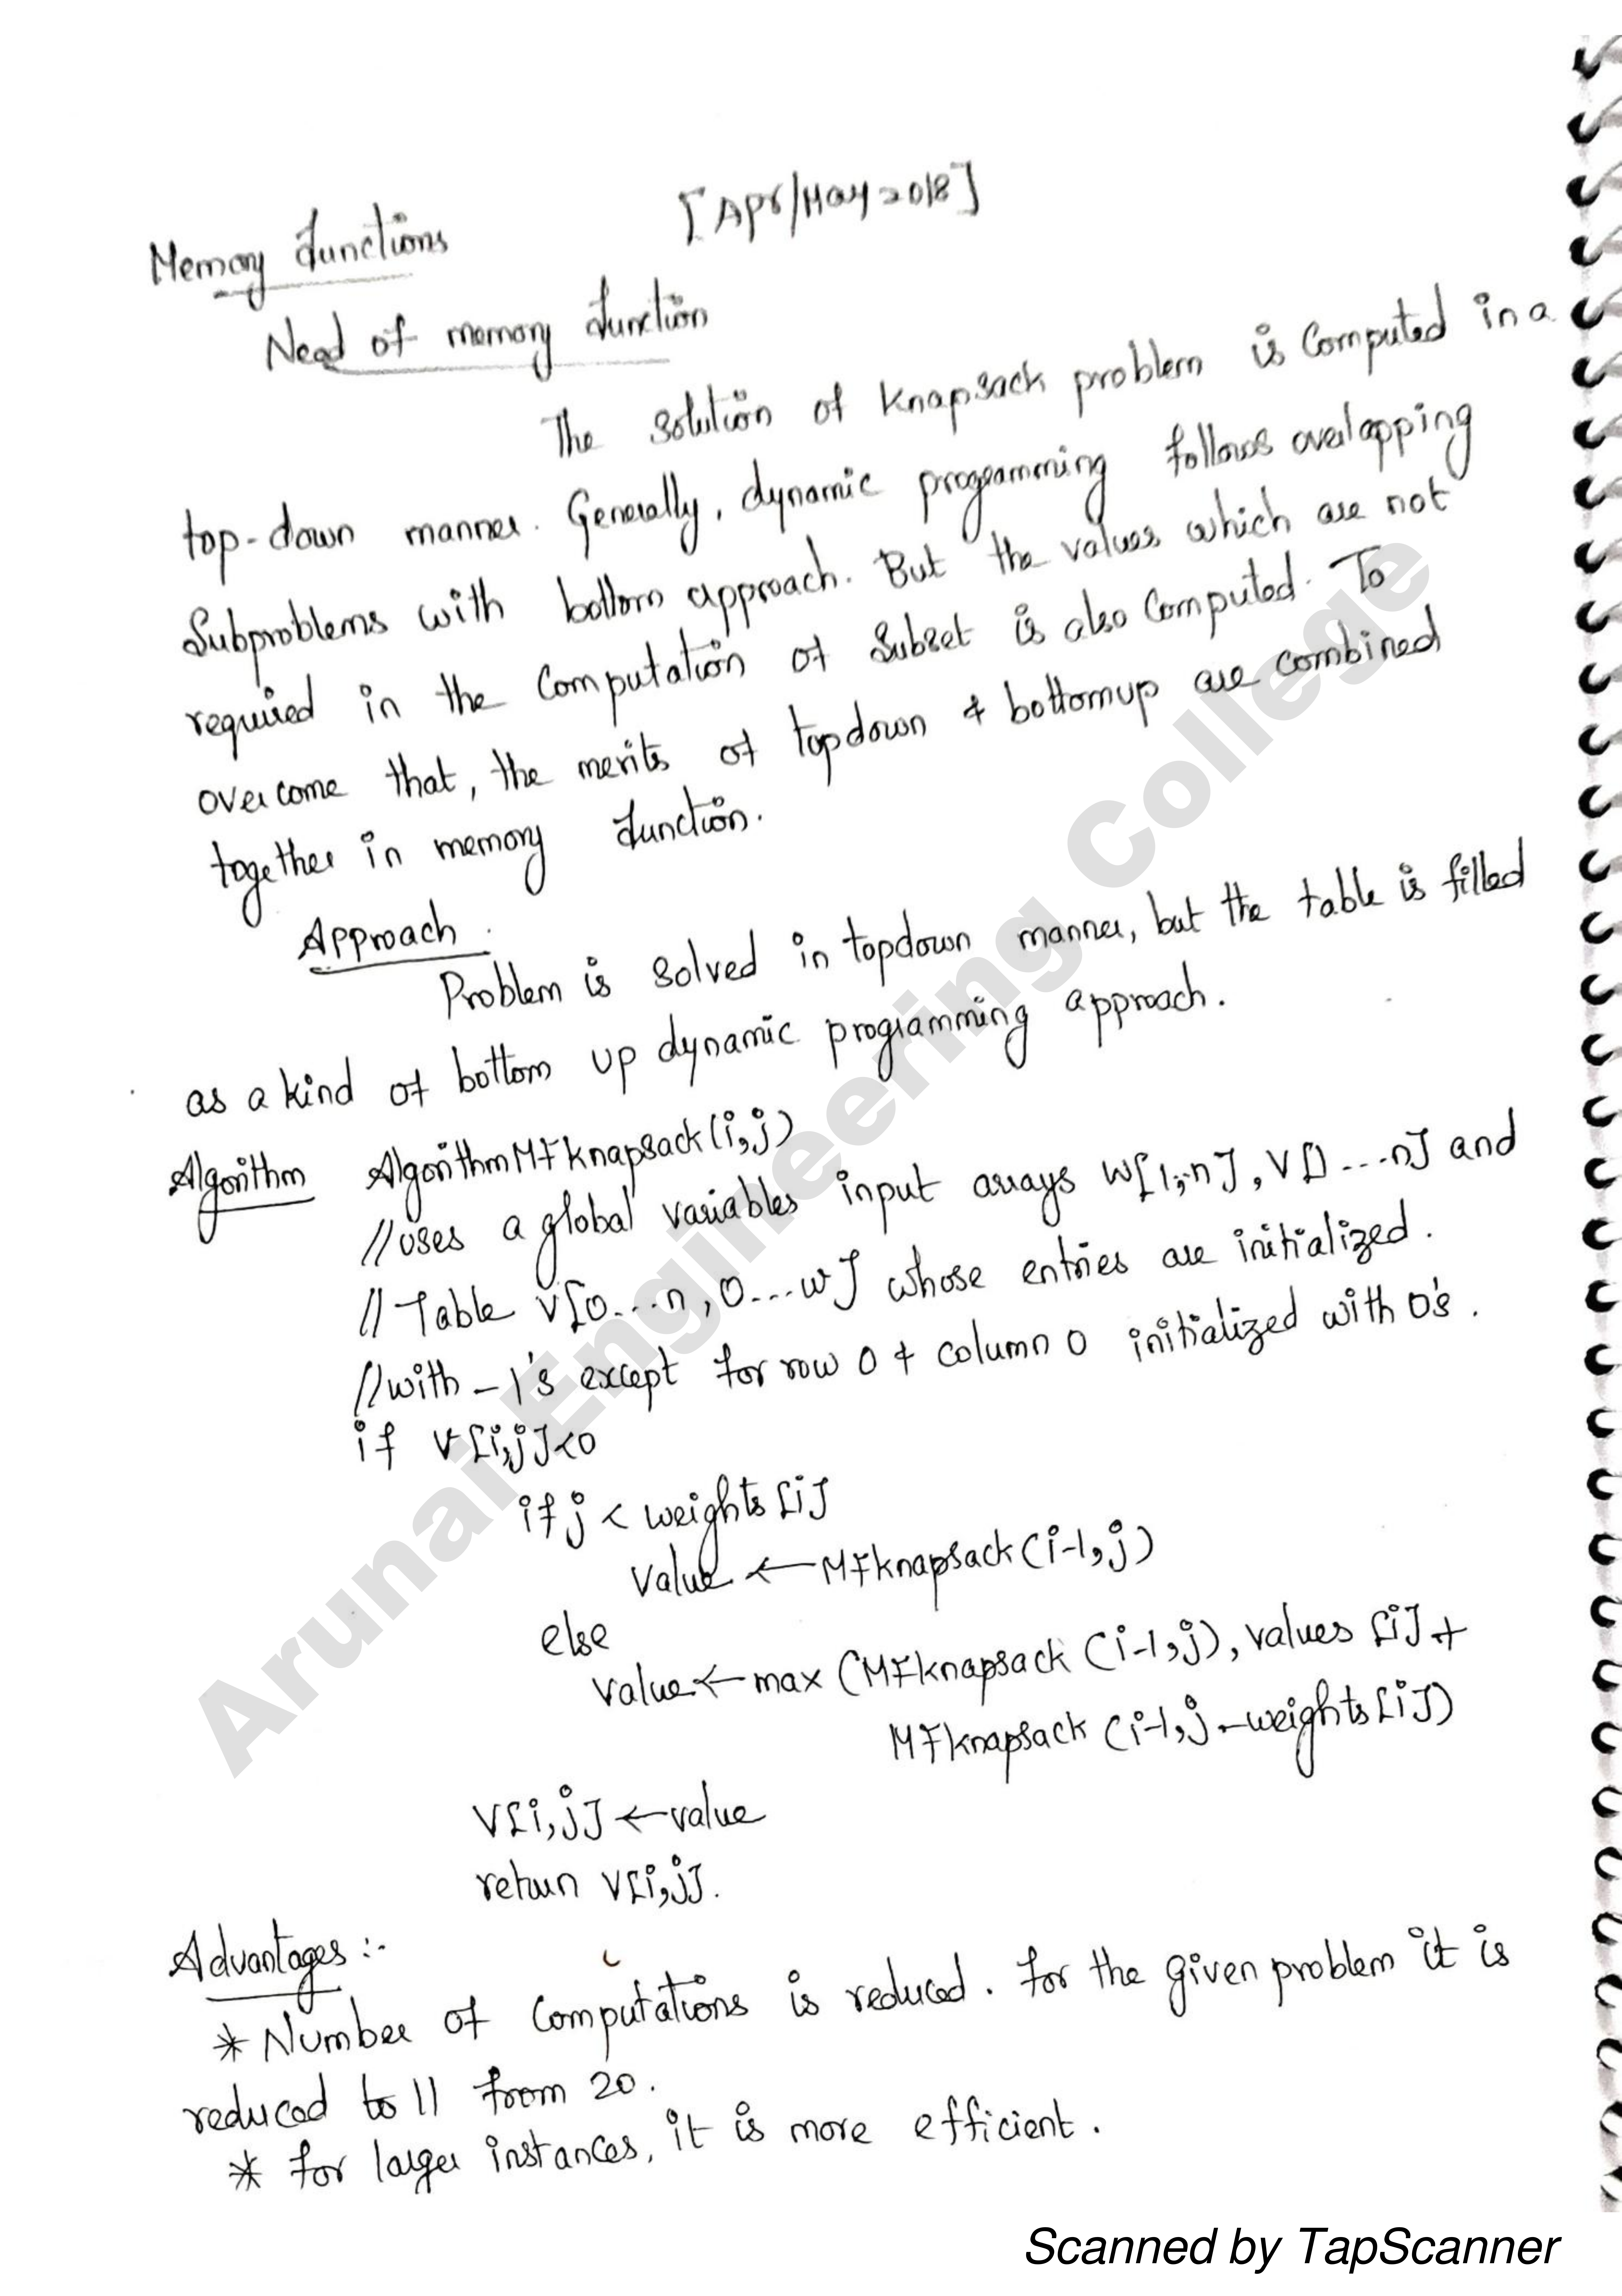 [Apr/May 2018]
Memory functions
Need of memory function
The solution of knapsack problem is computed in a
top-down manner. Generally, dynamic programming follows overlapping
Subproblems with bottom approach. But the values which are not
required in the computation of subset is also computed. To
overcome that, the merits of topdown & bottomup are combined
together in memory function.
Approach.
Problem is solved in topdown manner, but the table is filled
as a kind of bottom up dynamic programming approach.
Algorithm Algorithm MFknapsack(i,j)
//uses a global variables input arrays w[1,..n], V[1...n] and
//Table V[0...n, 0...w] whose entries are initialized.
//with -1's except for row 0 & column 0 initialized with 0's.
if V[i,j]<0
if j < weights[i]
Value ← MFknapsack(i-1,j)
else
value ← max (MFknapsack (i-1,j), values [i] +
MFknapsack (i-1,j-weights[i])
V[i,j] ← value
return V[i,j].
Advantages :-
* Number of computations is reduced. For the given problem it is
reduced to 11 from 20.
* for larger instances, it is more efficient.
Arunai Engineering College
Scanned by TapScanner